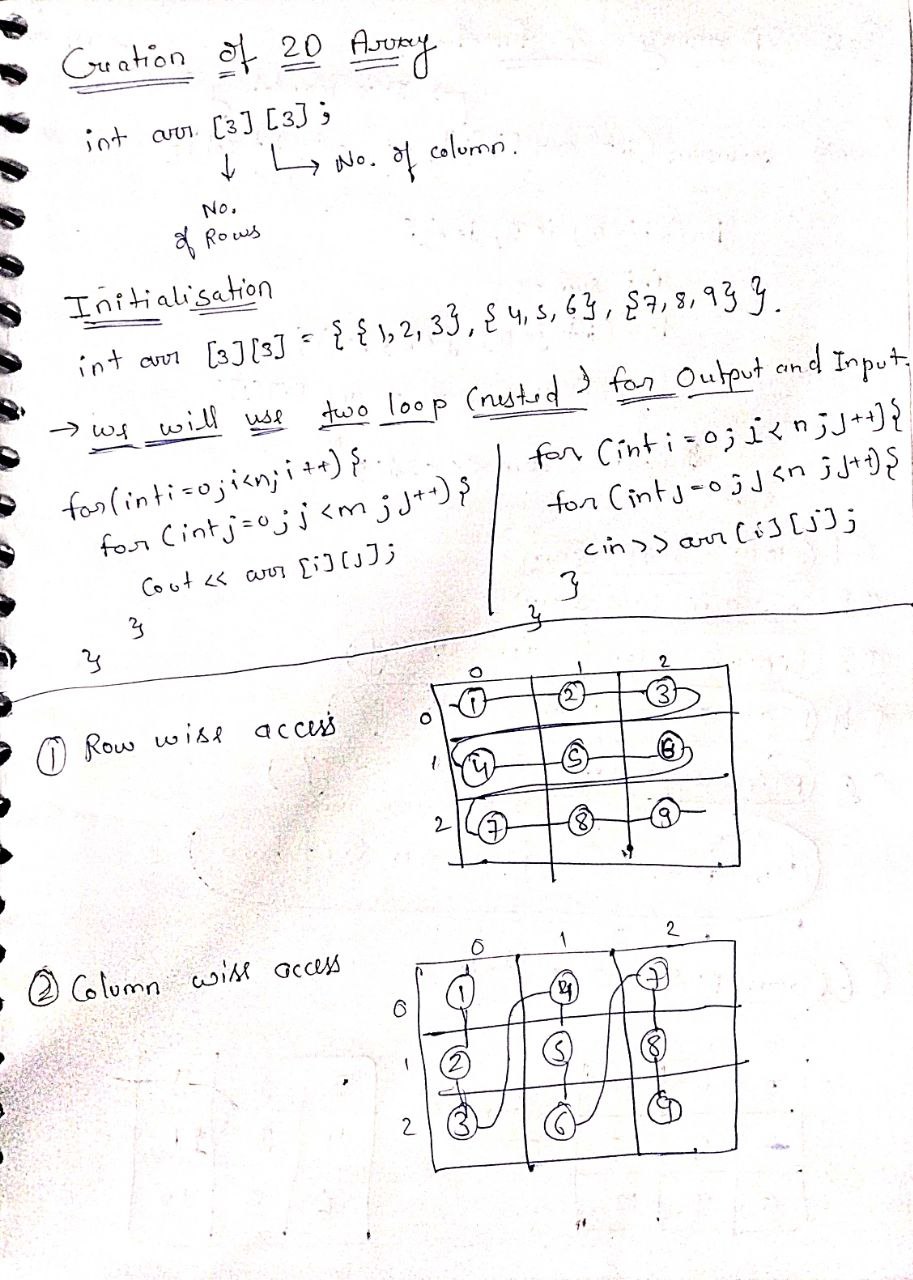 Creation of 2D Array
int arr [3] [3] ;
No. of column.
No.
of Rows
Initialisation
int arr [3][3] = { { 1, 2, 3}, { 4, 5, 6}, {7, 8, 9} }.
→ we will use two loop (nested) for Output and Input.
for(int i=0; i<n; i++) {
for (int j=0; j <m ; j++) {
cout << arr [i][j];
}
}
for (int i = 0; i < n ; j++) {
for (int j=0 ; j <n ; j++) {
cin >> arr [i][j];
}
}
① Row wise access
0 1 2
0 1 2 3
1 4 5 6
2 7 8 9
② Column wise access
0 1 2
0 1 4 7
1 2 5 8
2 3 6 9